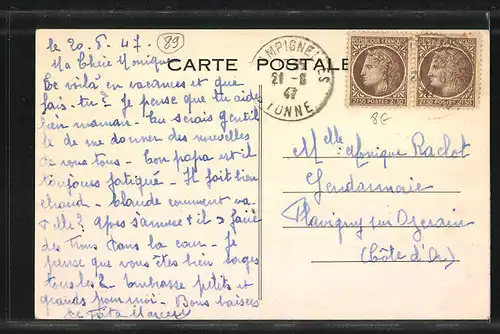 le 20.8.47.
89
CARTE POSTALE
Ma Chère Monique
Te voilà en vacances et que
fais-tu ? Je pense que tu aides
bien maman - Tu serais gentille
de me donner des nouvelles
de vous tous - Ton papa est-il
toujours fatigué - Il fait bien
chaud - Claude comment va-
t-elle ? après s'amuse t il à faire
des trous dans la cour - Je
pense que vous êtes bien sages
tous les 2 - Embrasse petits et
grands pour moi - Bons baisers
CHAMPIGNELLES
21-8
47
YONNE
REPUBLIQUE FRANÇAISE
POSTES 2F50
REPUBLIQUE FRANÇAISE
POSTES 2F50
8E
Melle Monique Raclot
Gendarmerie
Flavigny sur Ozerain
(Côte d'Or)